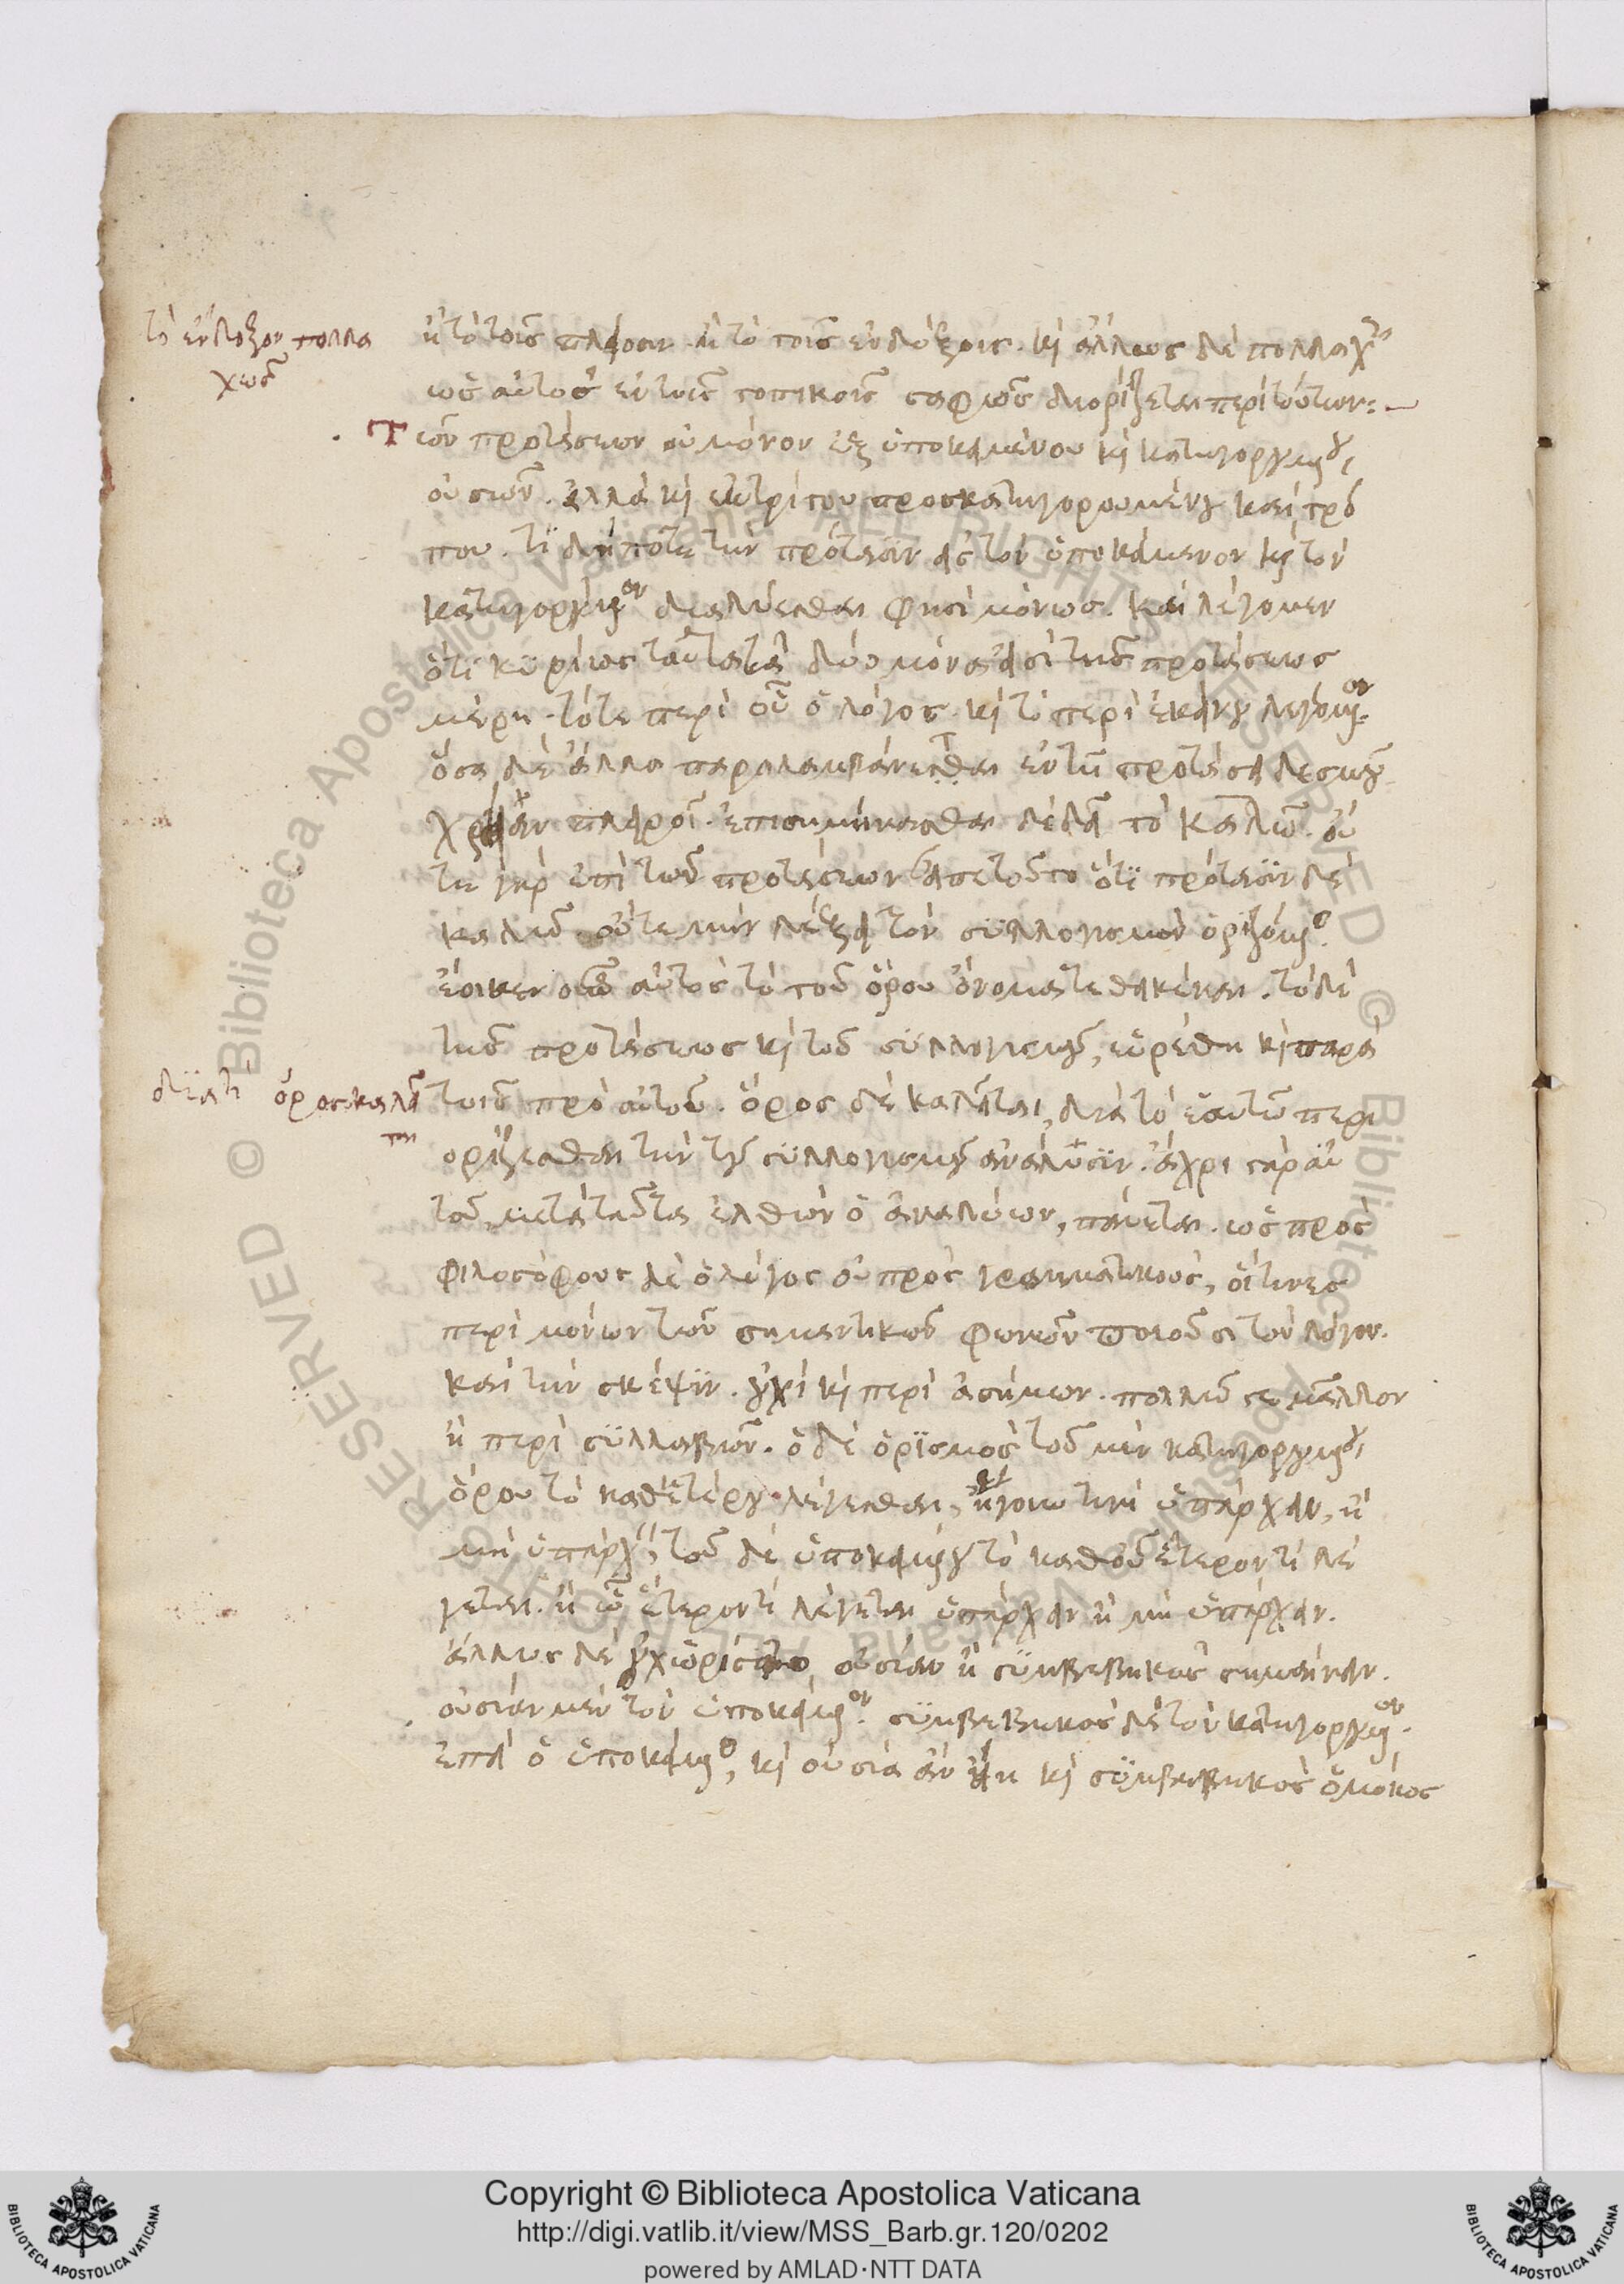 τὸ ἔνδοξον πολλα
χῶς
ἢ τὸ τοῖς πλείοσιν. ἢ τὸ τοῖς ἐνδόξοις. κὶ ἄλλως δὲ πολλαχῶς
ὡς αὐτὸς ἐν τοῖς τοπικοῖς σαφῶς διορίζεται περὶ τούτων:—
Τῶν προτάσεων οὐ μόνον ἐξ ὑποκειμένου κὶ κατηγορουμένου
οὐσῶν. ἀλλὰ κὶ ἐκ τρίτου προσκατηγορουμένου καὶ τρό
που. τί δήποτε τὴν πρότασιν εἰς τὸν ὑποκείμενον κὶ τὸν
κατηγορούμενον διαλύεσθαι φησὶ μόνως. καὶ λέγομεν
ὅτι κυρίως ταῦτα τὰ δύο μόνα εἰσὶ τῆς προτάσεως
μέρη. τό τε περὶ οὗ ὁ λόγος. κὶ τὸ περὶ ἐκείνου λεγόμενον.
ὅσα δὲ ἄλλα παραλαμβάνεσθαι ἐν τῇ προτάσει δεσμοῦ
χρείαν πληροῖ. ἐπισημήνασθαι δὲ δεῖ τὸ καλῶ. οὔ
τε γὰρ ἐπὶ τῶν προτάσεων εἶπε τοῦτο ὅτι πρότασιν δὲ
καλῶ. οὔτε μὴν λέξει τὸν συλλογισμὸν ὁριζόμενος.
ἔοικεν οὖν αὐτὸς τὸ τοῦ ὅρου ὄνομα τεθεικέναι. τὸ δὲ
τῆς προτάσεως κὶ τοῦ συλλογισμοῦ, εὑρέθη κὶ παρὰ
διατί ὅρος καλεῖ
ται
τοῖς πρὸ αὐτοῦ. ὅρος δὲ καλεῖται, διὰ τὸ ἑαυτῷ περι
ορίζεσθαι τὴν τοῦ συλλογισμοῦ ἀνάλυσιν. ἄχρι γὰρ αὐ
τοῦ, μετὰ ταῦτα ἐλθὼν ὁ ἀναλύων, παύεται. ὡς πρὸς
φιλοσόφους δὲ ὁ λόγος οὐ πρὸς γραμματικούς, οἵτινες
περὶ μόνων τῶν σημαντικῶν φωνῶν ποιοῦσι τὸν λόγον.
καὶ τὴν σκέψιν. οὐχὶ κὶ περὶ ἀσήμων. πολλῷ γε μᾶλλον
ἢ περὶ συλλαβῶν. ὁ δὲ ὁρισμὸς τοῦ μὲν κατηγορουμένου
ὅρου τὸ καθ' ἑτέρου λέγεσθαι, ἤγουν τινὶ ὑπάρχειν, ἢ
μὴ ὑπάρχειν, τοῦ δὲ ὑποκειμένου τὸ καθ' οὗ ἕτερόν τι λέ
γεται. ἢ ᾧ ἕτερόν τι λέγεται ὑπάρχειν ἢ μὴ ὑπάρχειν.
ἄλλως δὲ οὐχ ὡρίσατο οὐσίαν ἢ συμβεβηκὸς σημαίνειν.
οὐσίαν μὲν τὸν ὑποκείμενον. συμβεβηκὸς δὲ τὸν κατηγορούμενον.
ἐπεὶ ὁ ὑποκείμενος, κὶ οὐσία ἂν εἴη κὶ συμβεβηκὸς ὁμοίως
RESERVED © Biblioteca Apostolica Vaticana ALL RIGHTS RESERVED © Biblioteca Apostolica Vaticana ALL RIGHTS
Copyright © Biblioteca Apostolica Vaticana
http://digi.vatlib.it/view/MSS_Barb.gr.120/0202
powered by AMLAD·NTT DATA
BIBLIOTECA APOSTOLICA VATICANA
BIBLIOTECA APOSTOLICA VATICANA